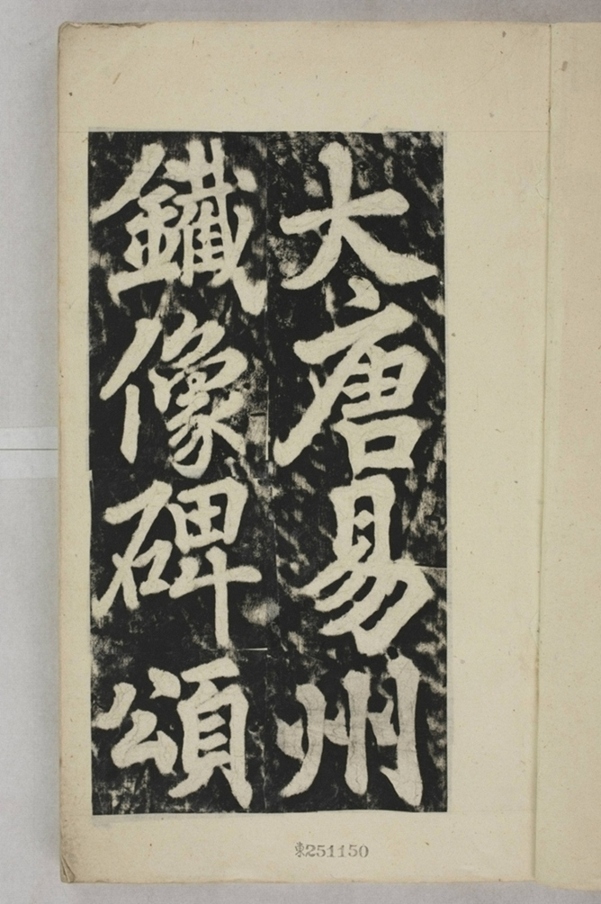 大唐易州
鐵像碑頌
東251150